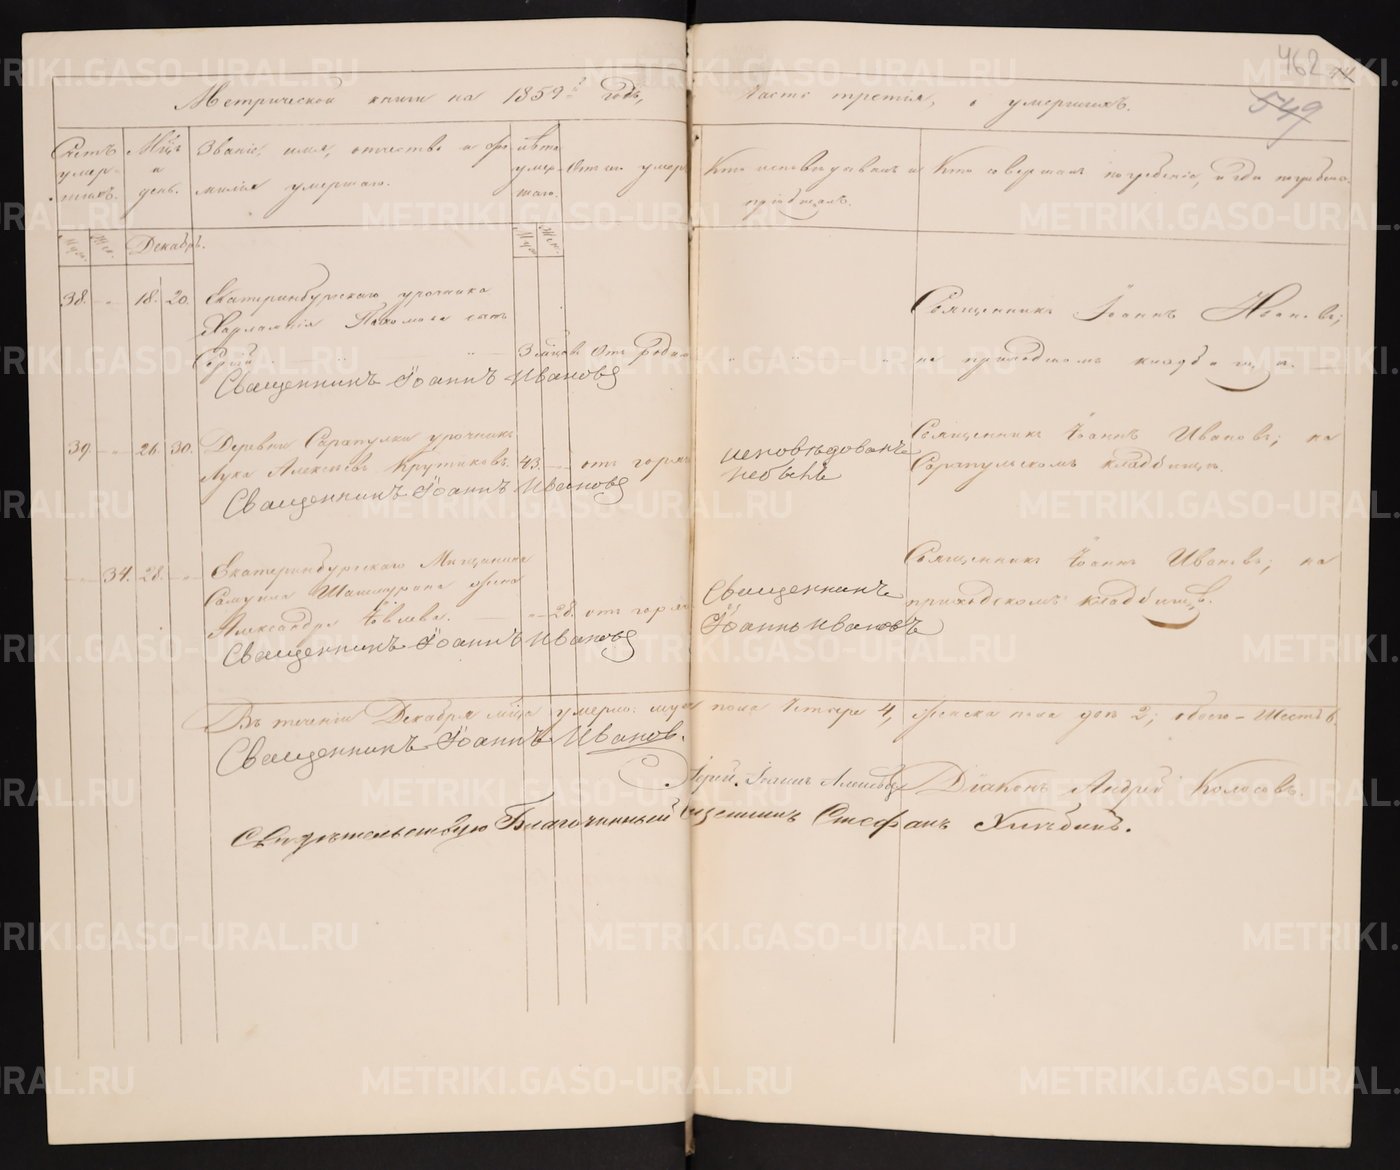 462
549
Метрической книги на 1859й годъ,
Часть третія, о умершихъ.
Счетъ умершихъ.
Мцъ и день.
Званіе, имя, отчество и фамилія умершаго.
Лѣта умершаго.
Отъ чего умер
Кто исповѣдывалъ и пріобщалъ.
Кто совершалъ погребеніе, и гдѣ погребены.
Муж. Жен.
Декабрь.
Муж. Жен.
38. 18. 20. Екатеринбургскаго урочника
Харлампія Пахомова сынъ
Сергій 3 мцов Отъ родим
Священникъ Іоаннъ Ивановъ
Священникъ Іоаннъ Ивановъ;
на приходскомъ кладбищѣ.
39. 26. 30. Деревни Сарапулки урочникъ
Лука Алексѣевъ Крутиковъ. 43. отъ горяч
Священникъ Іоаннъ Ивановъ
исповѣдованъ
небылъ
Священникъ Іоаннъ Ивановъ; на
Сарапульскомъ кладбищѣ.
34. 28. Екатеринбургскаго Мещанина
Самуила жена
Александра Іовлева. 28. отъ горяч
Священникъ Іоаннъ Ивановъ
Священникъ
Іоаннъ Ивановъ
Священникъ Іоаннъ Ивановъ; на
приходскомъ кладбищѣ.
Въ теченіи Декабря мца умерло: муж пола Четыре 4, женска пола двѣ 2; обоего – Шесть 6.
Священникъ Іоаннъ Ивановъ.
Іерей Іоаннъ Діаконъ Андрей Колосовъ.
Свидѣтельствую Благочинный Священникъ Стефанъ
METRIKI.GASO-URAL.RU